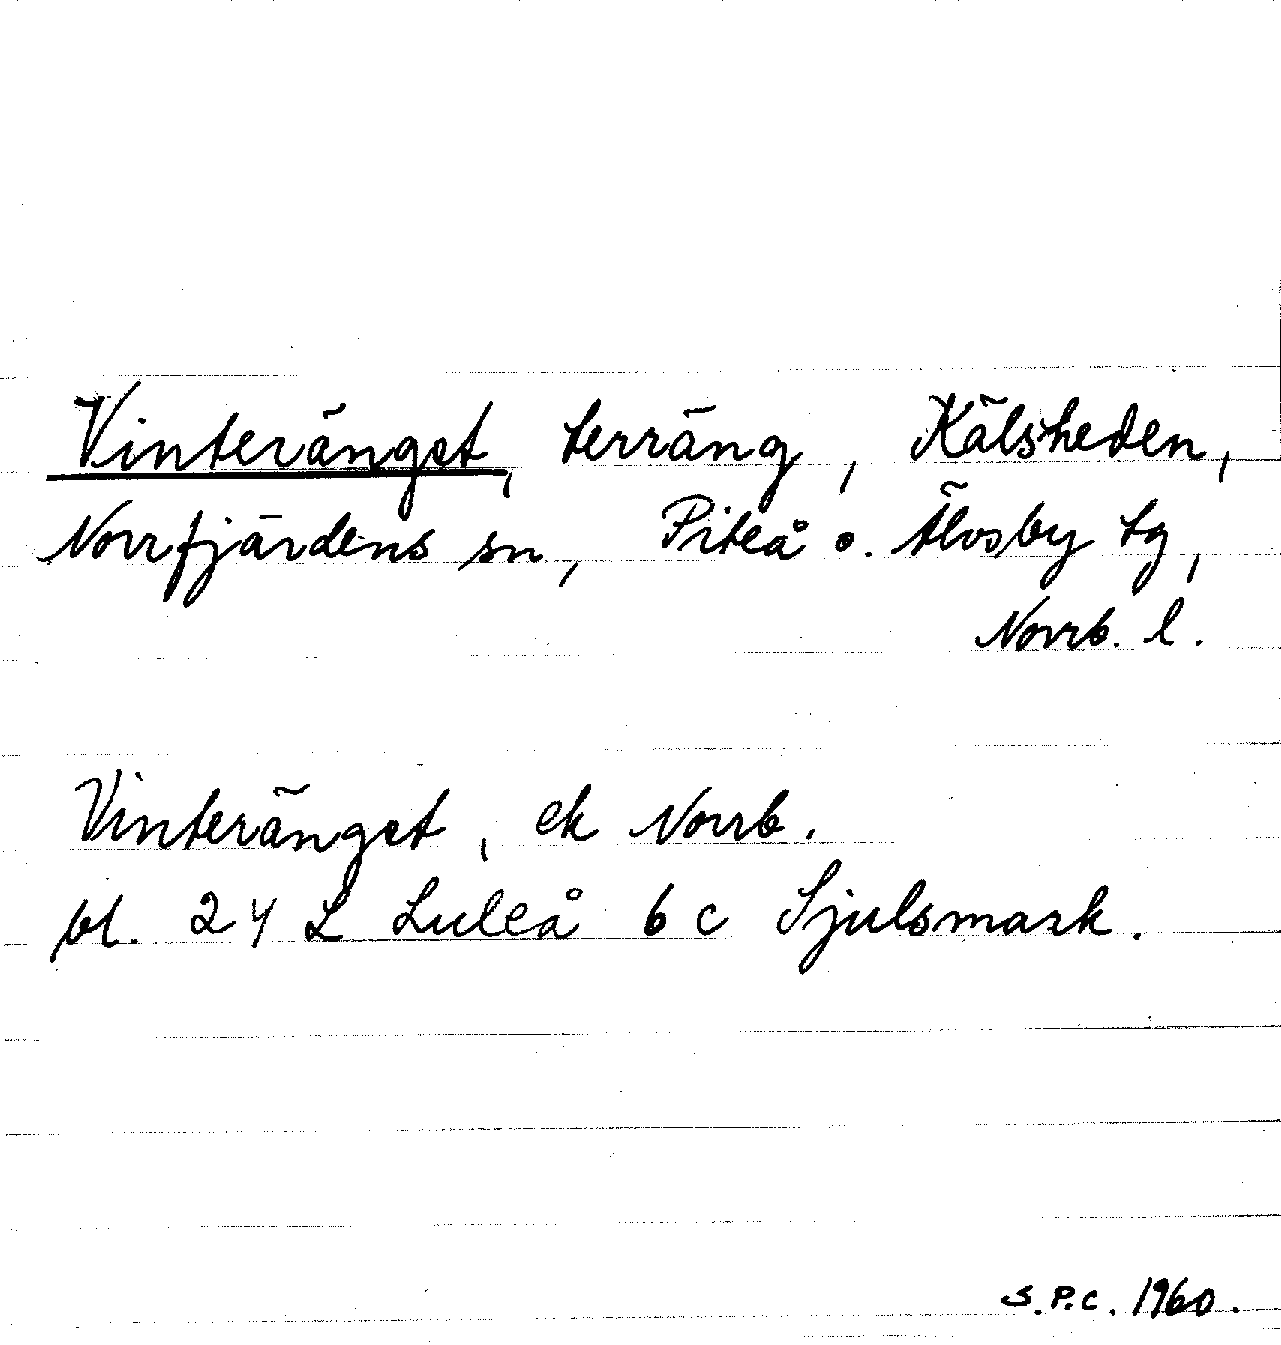 Vinteränget, terräng, Kälsheden,
Norrfjärdens sn, Piteå o. Älvsby tg,
Norrb. l.
Vinteränget, ek Norrb.
bl. 24 L Luleå 6 c Sjulsmark.
S.P.C. 1960.